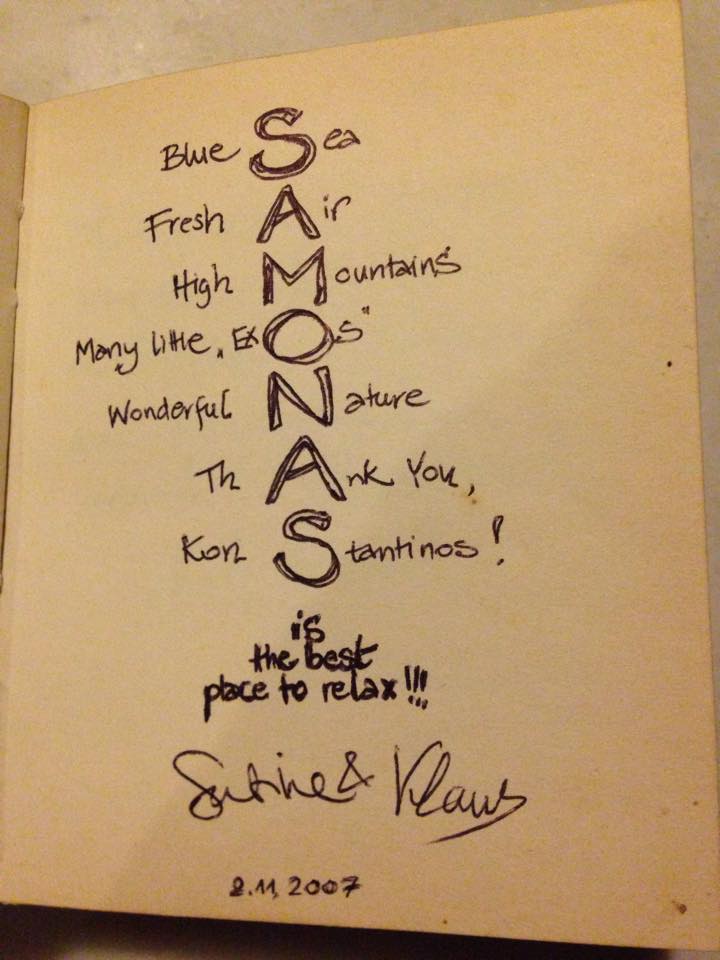 Blue Sea
Fresh Air
High Mountains
Many little „ExOs"
Wonderful Nature
ThAnk You,
KonStantinos!
is
the best
place to relax!!!
& Klaus
2.11, 2007